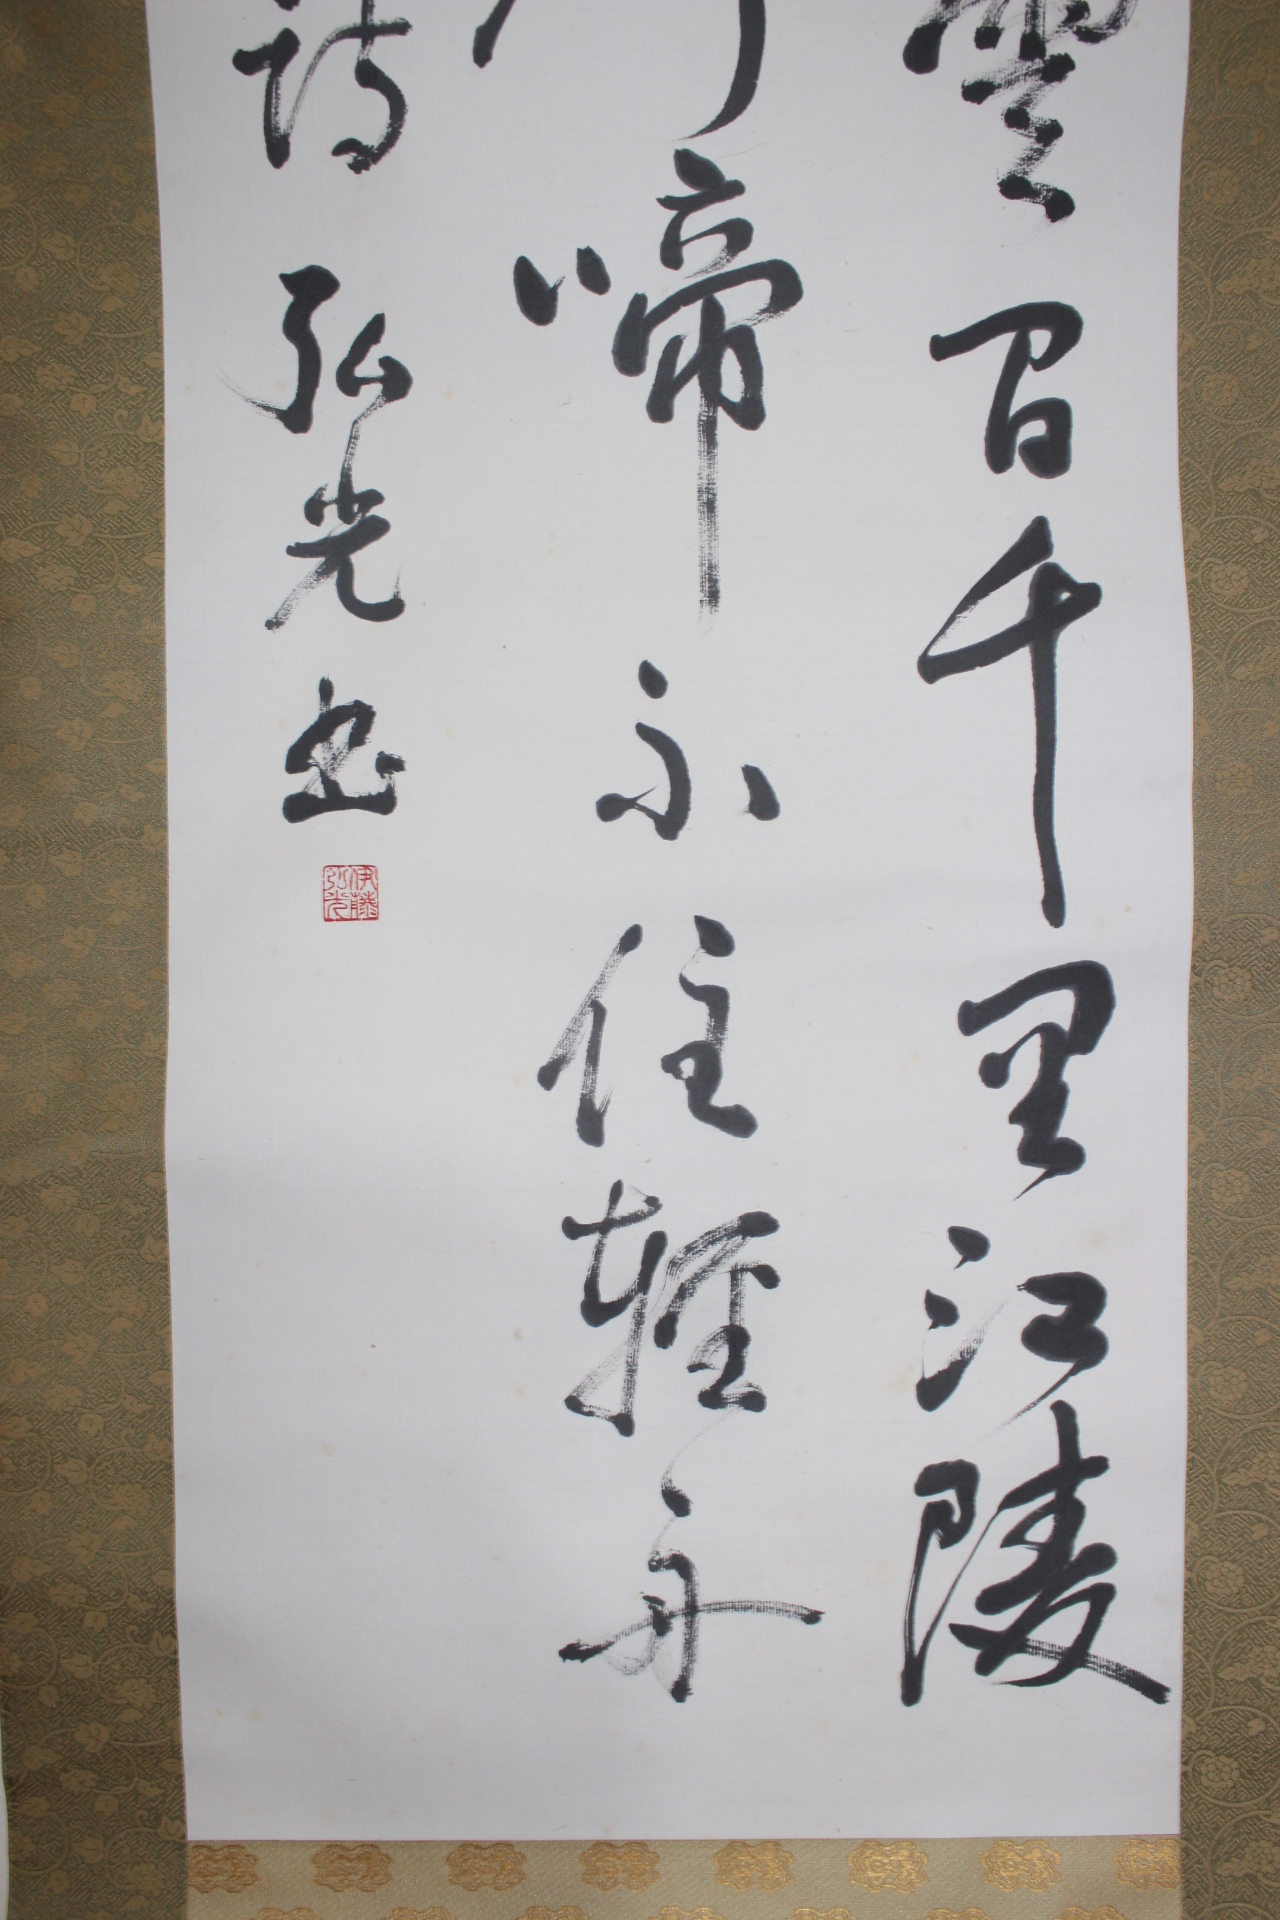 雲間千里江陵
啼不住輕舟
詩 弘光書
伊藤弘光